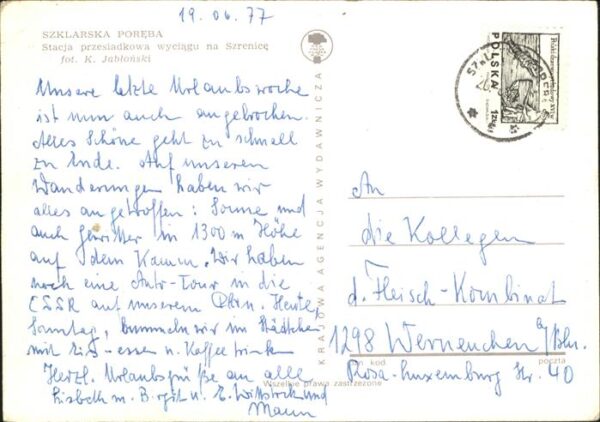 19.06.77
SZKLARSKA PORĘBA
Stacja przesiadkowa wyciągu na Szrenicę
fot. K. Jabłoński
Unsere letzte Urlaubswoche
ist nun auch angebrochen.
Alles Schöne geht zu schnell
zu Ende. Auf unseren
Wanderungen haben wir
alles angetroffen: Sonne und
auch Gewitter in 1300 m Höhe
auf dem Kamm. Wir haben
noch eine Auto-Tour in die
ČSSR auf unserem Pkw. Heute,
Sonntag, bummeln wir im Städtchen
mit Eis-essen u. Kaffee trinken
Herzl. Urlaubsgrüße an alle
Lisbeth m. Birgit u. E. Wittstock und
Mann
KRAJOWA AGENCJA WYDAWNICZA
Wszelkie prawa zastrzeżone
POLSKA
An
die Kollegen
d. Fleisch-Kombinat
1298 Werneuchen b/Bln.
kod
poczta
Rosa-Luxemburg Str. 40